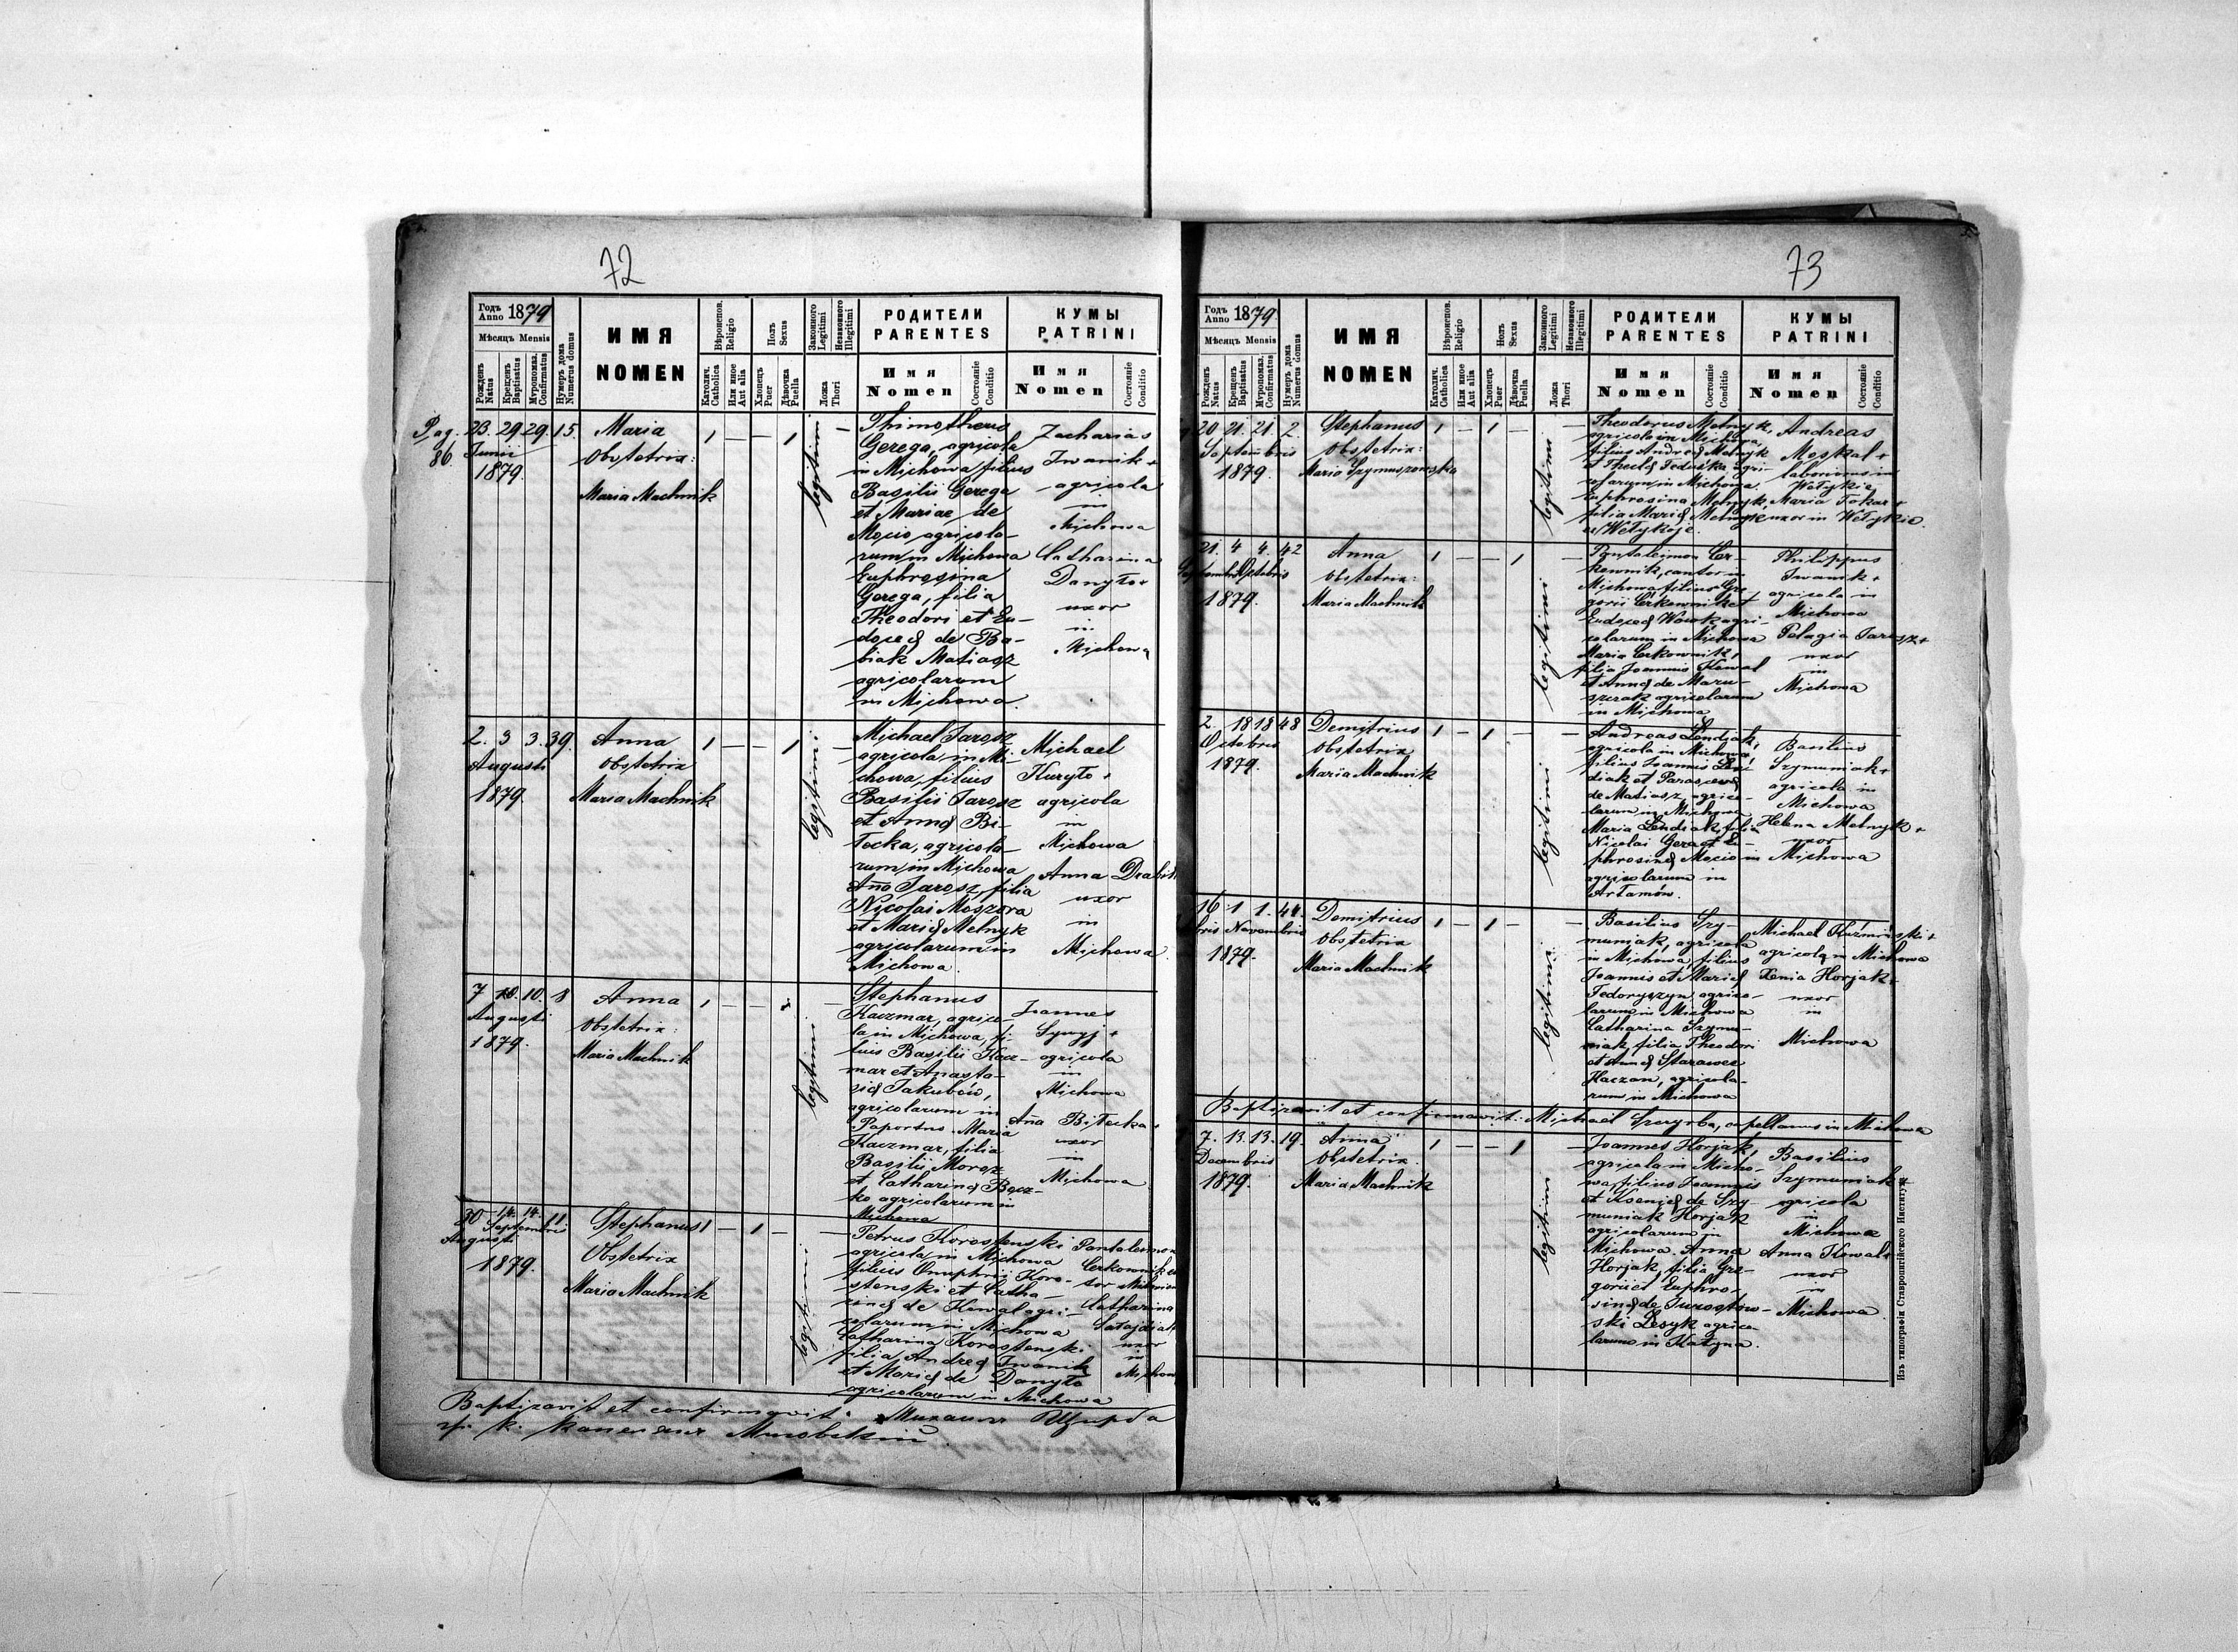 72
Годъ Anno 1879
Мѣсяцъ Mensis
Рожденъ Natus
Крещенъ Baptisatus
Мѵропомаз. Confirmatus
Нумеръ дома Numerus domus
ИМЯ
NOMEN
Вѣроиспов. Religio
Католич. Catholica
Или иное Aut alia
Полъ Sexus
Хлопецъ Puer
Дѣвочка Puella
Законного Legitimi
Незаконного Illegitimi
Ложа Thori
РОДИТЕЛИ
PARENTES
Имя
Nomen
Состояніе Conditio
КУМЫ
PATRINI
Имя
Nomen
Состояніе Conditio
Pag. 86
23. 29 29. 15.
Junii
1879.
Maria
Obstetrix:
Maria Machnik
1 — — 1
legitimi
—
Thimotheus
Gerega, agricola
in Michowa, filius
Basilii Gerega
et Mariae de
Mocio agricola-
rum in Michowa
Euphrosina
Gerega, filia
Theodori et Eu-
doceae de Ba-
biak Matiasz
agricolarum
in Michowa.
Zacharias
Iwanik +
agricola
in
Michowa
Catharina
Danyło +
uxor
in
Michowa
2. 3 3. 39.
Augusti
1879.
Anna
Obstetrix
Maria Machnik
1 — — 1
legitimi
—
Michael Jarosz
agricola in Mi-
chowa, filius
Basilii Jarosz
et Annae Bi-
łocka, agricola-
rum in Michowa
Anna Jarosz, filia
Nicolai Moszora
et Mariae Melnyk
agricolarum in
Michowa.
Michael
Kuryło +
agricola
in
Michowa
Anna
uxor
in
Michowa.
7 10. 10. 8
Augusti
1879.
Anna
Obstetrix:
Maria Machnik
1 — —
legitimi
—
Stephanus
Kaczmar, agrico-
la in Michowa, fi-
lius Basilii Kacz-
mar et Anasta-
siae Jakubów,
agricolarum in
Paportno. Maria
Kaczmar, filia
Basilii Morosz
et Catharinae Bocz-
ko agricolarum in
Michowa
Joannes
Sywyj +
agricola
in
Michowa
Anna Biłecka +
uxor
in
Michowa
30 14. 14. 11
Augusti Septembris
1879.
Stephanus
Obstetrix
Maria Machnik
1 — 1 —
legitimi
—
Petrus Korostenski
agricola in Michowa
filius Onuphrii Koro-
stenski et Catha-
rinae de Kowal agri-
colarum in Michowa
Catharina Korostenski
filia Andreae Iwanik
et Mariae de Danyło
agricolarum in Michowa
Pantaleimon
Cerkownik
Catharina
uxor
in
Baptizavit et confirmavit: Михаилъ Щирба
73
Годъ Anno 1879.
Мѣсяцъ Mensis
Рожденъ Natus
Крещенъ Baptisatus
Мѵропомаз. Confirmatus
Нумеръ дома Numerus domus
ИМЯ
NOMEN
Вѣроиспов. Religio
Католич. Catholica
Или иное Aut alia
Полъ Sexus
Хлопецъ Puer
Дѣвочка Puella
Законного Legitimi
Незаконного Illegitimi
Ложа Thori
РОДИТЕЛИ
PARENTES
Имя
Nomen
Состояніе Conditio
КУМЫ
PATRINI
Имя
Nomen
Состояніе Conditio
20 21. 21. 2
Septembris
1879.
Stephanus
Obstetrix:
Maria Szymuszowska
1 — 1 —
legitimi
—
Theodorus Melnyk,
agricola in Michowa,
filius Andreae Melnyk
et Theclae Feduśka agri-
colarum in Michowa.
Euphrosina Melnyk,
filia Mariae Melnyk
ex Wełykoje.
Andreas
Moskal +
laboriosus in
Wełykie
Maria Tokar +
uxor in Wełykie.
21. 4 4. 42
Septembris Octobris
1879.
Anna
Obstetrix:
Maria Machnik
1 — — 1
legitimi
—
Pantaleimon Cer-
kownik, cantor in
Michowa, filius Gre-
gorii Cerkownik et
Eudoceae Wowk agri-
colarum in Michowa
Maria Cerkownik,
filia Joannis Kowal
et Annae de Maru-
szczak agricolarum
in Michowa
Philippus
Iwanik +
agricola in
Michowa
Pelagia Jarosz +
uxor
in
Michowa
2. 18 18 48
Octobris
1879.
Demitrius
Obstetrix
Maria Machnik
1 — 1 —
legitimi
—
Andreas Lendiak,
agricola in Michowa
filius Joannis Len-
diak et Parascevae
de Matiasz agrico-
larum in Michowa
Maria Lendiak, filia
Nicolai Gera et Eu-
phrosinae Mocio in
agricolarum in
Artamów.
Basilius
Szymuniak +
agricola in
Michowa
Helena Melnyk +
uxor
Michowa
16 1 1. 44.
bris Novembris
1879.
Demitrius
Obstetrix
Maria Machnik
1 — 1 —
legitimi
—
Basilius Szy-
muniak, agricola
in Michowa, filius
Joannis et Mariae
Fedoryszyn agrico-
larum in Michowa
Catharina Szymu-
niak, filia Theodori
et Annae Starawes
Haczan, agricola-
rum in Michowa
Michael Kuźmiński +
agricola in Michowa
Xenia Horjak +
uxor
in
Michowa
Baptizavit et confirmavit: Michael Szczyrba, capellanus in Michowa
7. 13. 13. 19.
Decembris
1879.
Anna
Obstetrix.
Maria Machnik
1 — — 1
legitimi
—
Joannes Horjak,
agricola in Micho-
wa, filius Joannis
et Kseniae de Szy-
muniak Horjak
agricolarum in
Michowa. Anna
Horjak, filia Gre-
gorii et Euphro-
sinae de Jurostow-
ski Lesyk agrico-
larum in Katyna.
Basilius
Szymuniak +
agricola
in
Michowa
Anna Kowal +
uxor
in
Michowa
Изъ типографіи Ставропигійского Института